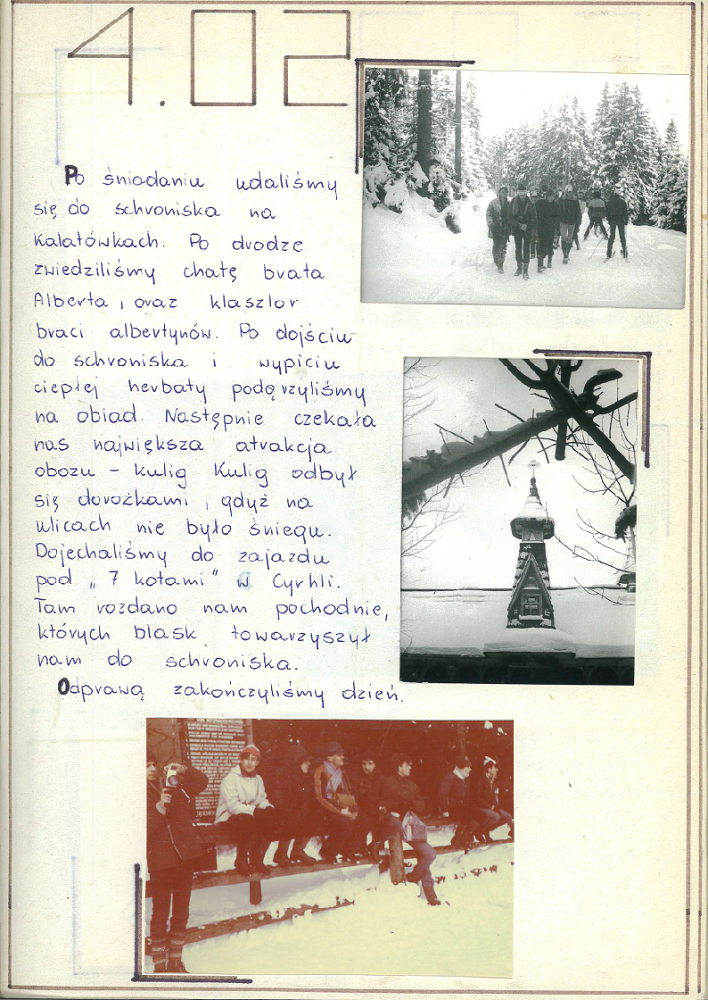 4.02
Po śniadaniu udaliśmy
się do schroniska na
Kalatówkach. Po drodze
zwiedziliśmy chatę brata
Alberta, oraz klasztor
braci albertynów. Po dojściu
do schroniska i wypiciu
ciepłej herbaty podążyliśmy
na obiad. Następnie czekała
nas największa atrakcja
obozu – kulig. Kulig odbył
się dorożkami, gdyż na
ulicach nie było śniegu.
Dojechaliśmy do zajazdu
pod „7 kotami" w Cyrhli.
Tam rozdano nam pochodnie,
których blask towarzyszył
nam do schroniska.
Odprawą zakończyliśmy dzień.